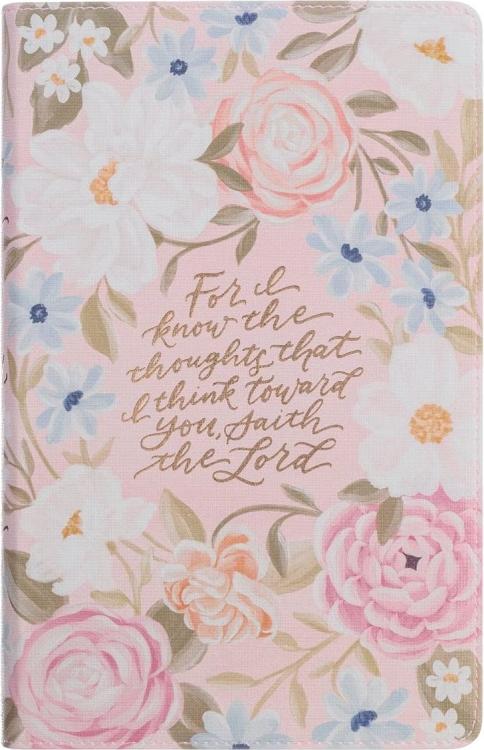 For I
know the
thoughts that
I think toward
you, saith
the Lord